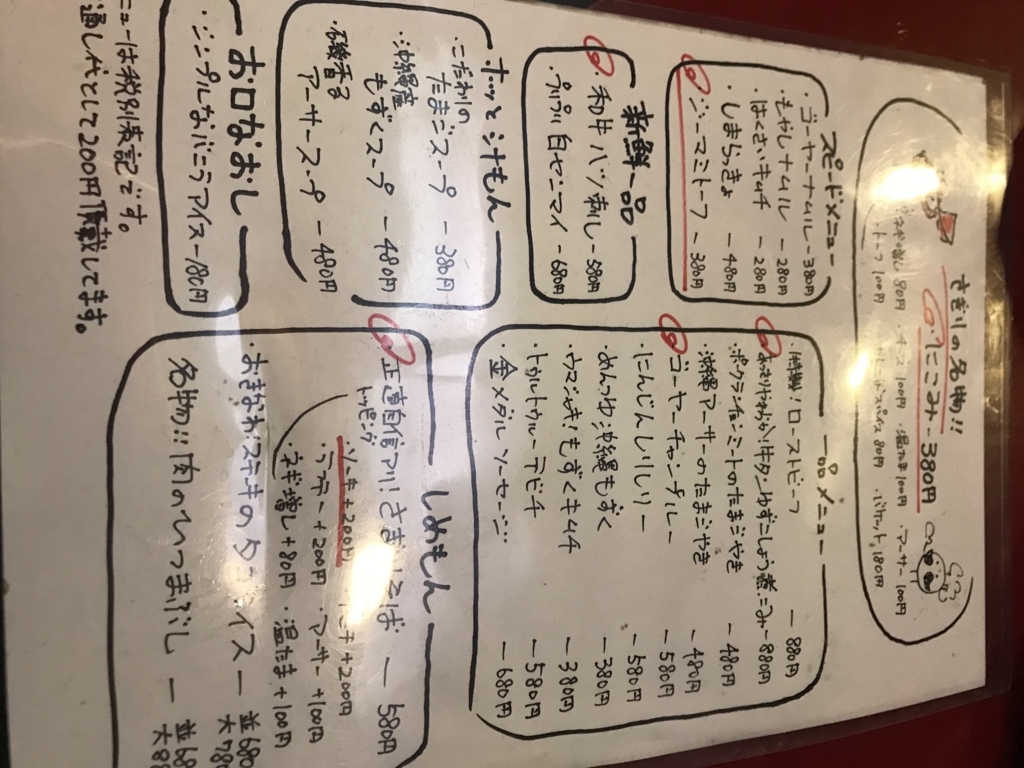 さぎりの名物!!
にこみ-380円
ネギ増し80円
100円
・温たま100円
・アーサー100円
トーフ100円
80円
・バケット180円
スピードメニュー
・ゴーヤーナムル-380円
・もやしナムル-280円
・はくさいキムチ-280円
・しまらっきょ-480円
・ジーマミトーフ-380円
新鮮一品
・和牛ハツ刺し-580円
・プリプリ白センマイ-680円
ホッと汁もん
・こだわりのたまごスープ-380円
・沖縄産もずくスープ-480円
アーサースープ-480円
お口なおし
・シンプルなバニラアイス-180円
一品メニュー
・特製!ローストビーフ-880円
牛タンゆずこしょう煮こみ-880円
・ポークランチョンミートのたまごやき-480円
・沖縄アーサのたまごやき-480円
・ゴーヤーチャンプルー-580円
・にんじんしりしりー-580円
・めんつゆ沖縄もずく-380円
・ウマシオ!もずくキムチ-380円
・トゥルトゥルーテビチ-580円
・金メダルソーセージ-680円
しめもん
・正直自信アリ!さぎりそば-580円
トッピング
ソーキ+200円
+200円
・ラフテー+200円
・アーサー+100円
・ネギ増し+80円
・温たま+100円
ステーキの
イスー並
大
名物!!肉のひつまぶし-並
大
ニューは税別表記です。
通し代として200円頂戴してます。